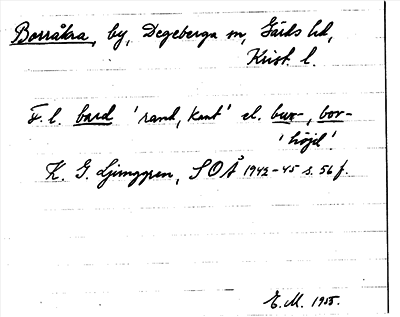 Borråkra, by, Degeberga sn, Gärds hd,
Krist. l.
F. l. bard 'rand, kant' el. bur-, bor-
'höjd'.
K. G. Ljunggren, SOÅ 1942-45 s. 56 f.
E. M. 1955.